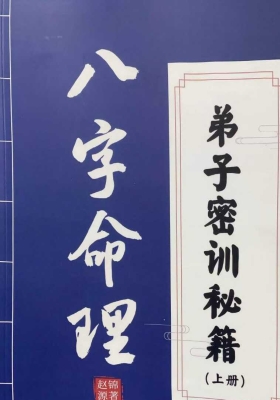 八字命理
弟子密训秘籍
(上册)
赵源
锦著